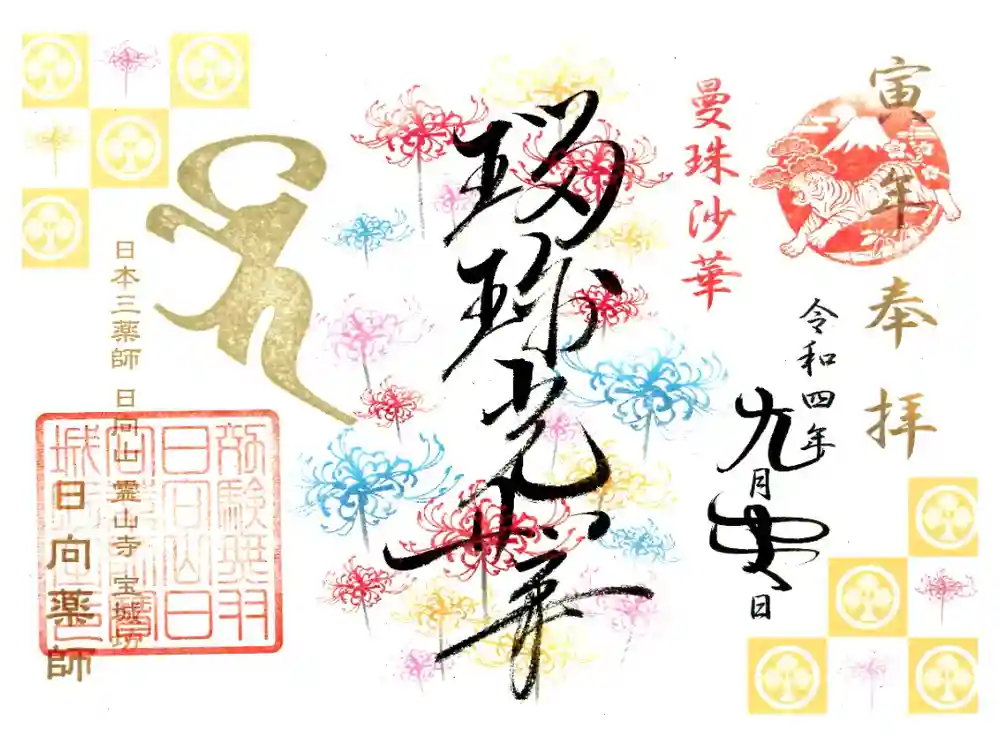 寅年 奉拝
令和四年
九月 日
曼珠沙華
瑠璃光
日本三薬師 日向山 霊山寺 宝城坊
日向薬師